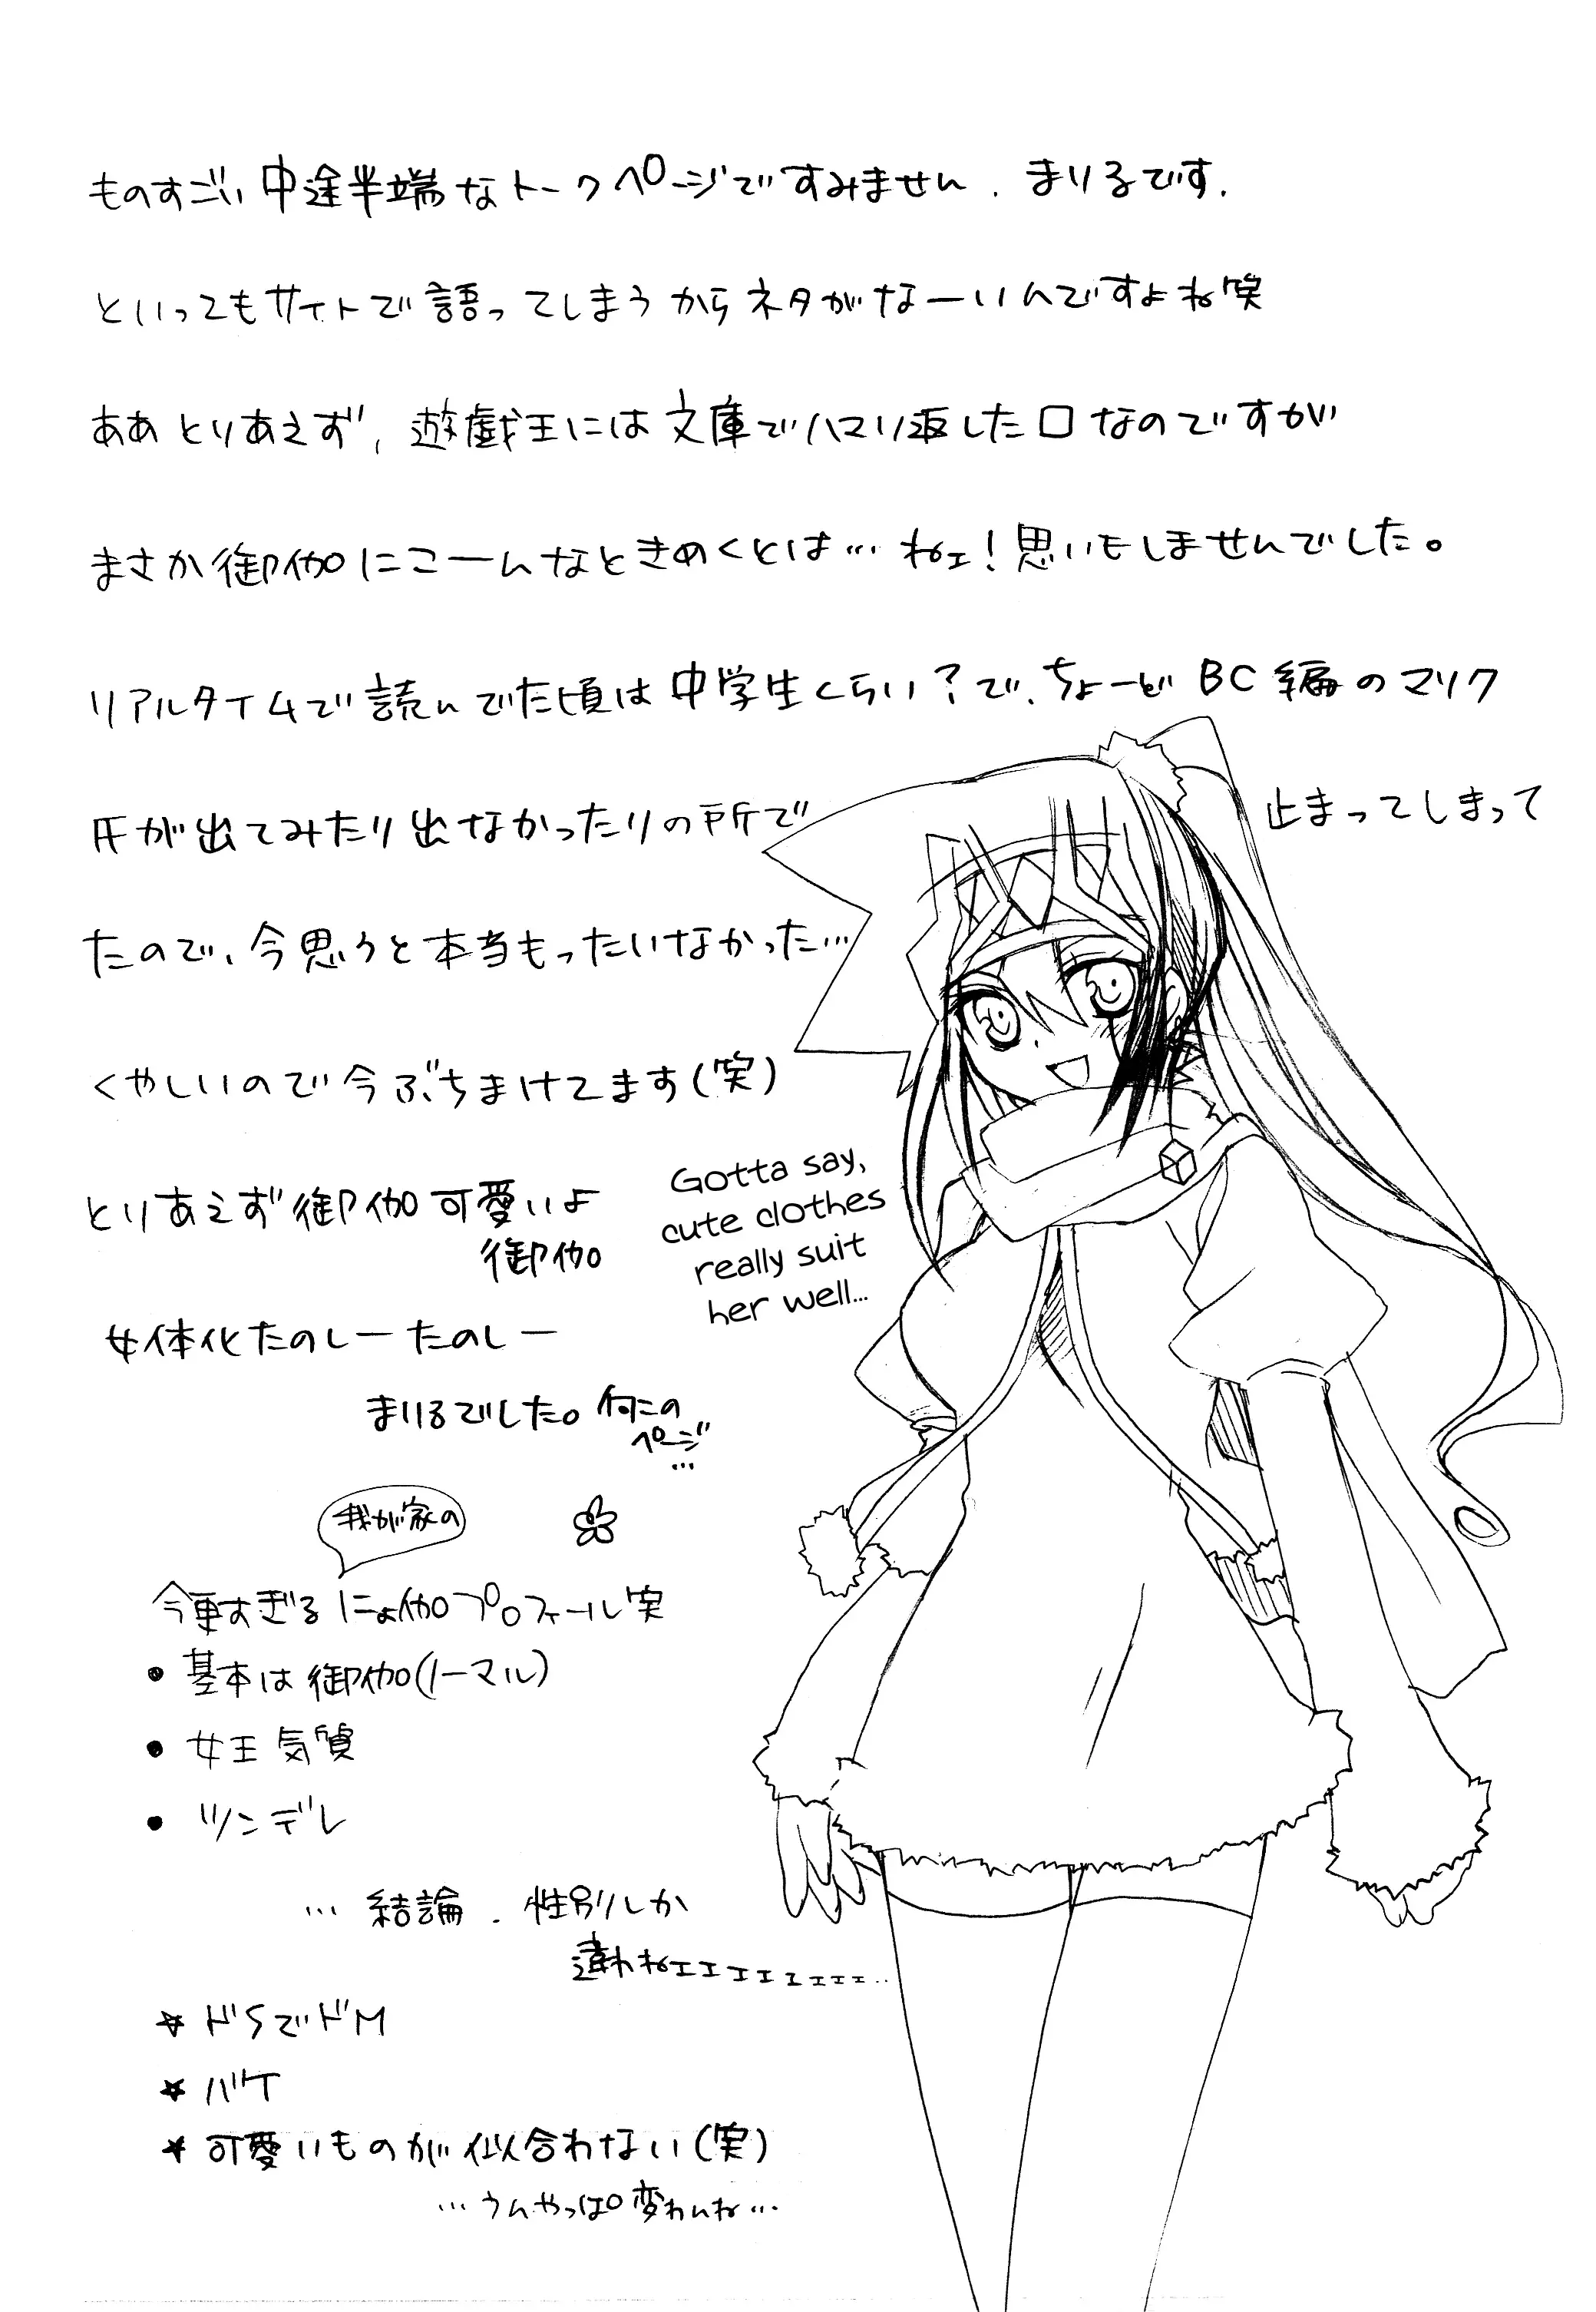 ものすごい中途半端なトークページですみません. まりるです.
といってもサイトで語ってしまうからネタがなーいんですよね笑
ああとりあえず, 遊戯王には文庫でハマり返した口なのですが
まさか御伽にこーんなときめくとは…ねェ!思いもしませんでした。
リアルタイムで読んでた頃は中学生くらい?で、ちょーどBC編のマリク
氏が出てみたり出なかったりの所で止まってしまって
たので、今思うと本当もったいなかった…
くやしいので今ぶちまけてます(笑)
とりあえず御伽可愛いよ
御伽
Gotta say,
cute clothes
really suit
her well...
女体化たのしーたのしー
まりるでした。何この
ページ
…
我が家の
今更すぎるにょ伽プロフィール笑
• 基本は御伽(ノーマル)
• 女王気質
• ツンデレ
…結論. 性別しか
違わねェェェェェェェェ…
★ドSでドM
★バケ
★可愛いものが似合わない(笑)
…うんやっぱ変わんね…